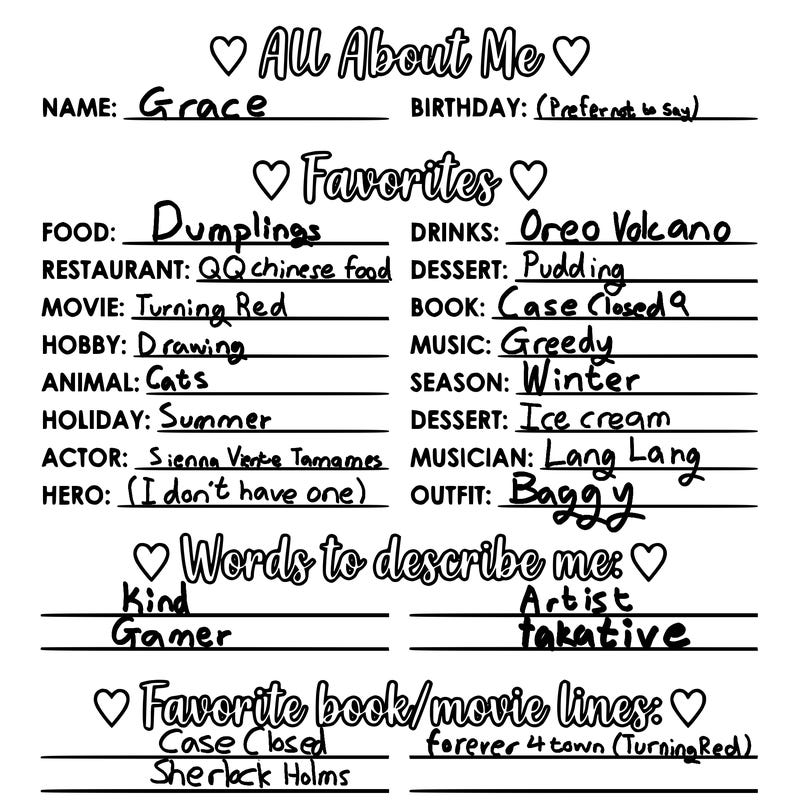 All About Me
NAME: Grace BIRTHDAY: (Prefer not to say)
Favorites
FOOD: Dumplings DRINKS: Oreo Volcano
RESTAURANT: QQ chinese food DESSERT: Pudding
MOVIE: Turning Red BOOK: Case Closed 9
HOBBY: Drawing MUSIC: Greedy
ANIMAL: Cats SEASON: Winter
HOLIDAY: Summer DESSERT: Ice cream
ACTOR: Sienna Vierte Tamames MUSICIAN: Lang Lang
HERO: (I don't have one) OUTFIT: Baggy
Words to describe me:
Kind Artist
Gamer takative
Favorite book/movie lines:
Case Closed forever 4 town (Turning Red)
Sherlock Holms